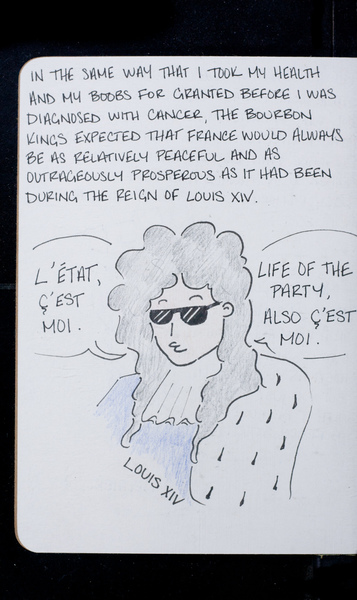 IN THE SAME WAY THAT I TOOK MY HEALTH
AND MY BOOBS FOR GRANTED BEFORE I WAS
DIAGNOSED WITH CANCER, THE BOURBON
KINGS EXPECTED THAT FRANCE WOULD ALWAYS
BE AS RELATIVELY PEACEFUL AND AS
OUTRAGEOUSLY PROSPEROUS AS IT HAD BEEN
DURING THE REIGN OF LOUIS XIV.
L'ÉTAT,
Ç'EST
MOI.
LIFE OF THE
PARTY,
ALSO Ç'EST
MOI.
LOUIS XIV